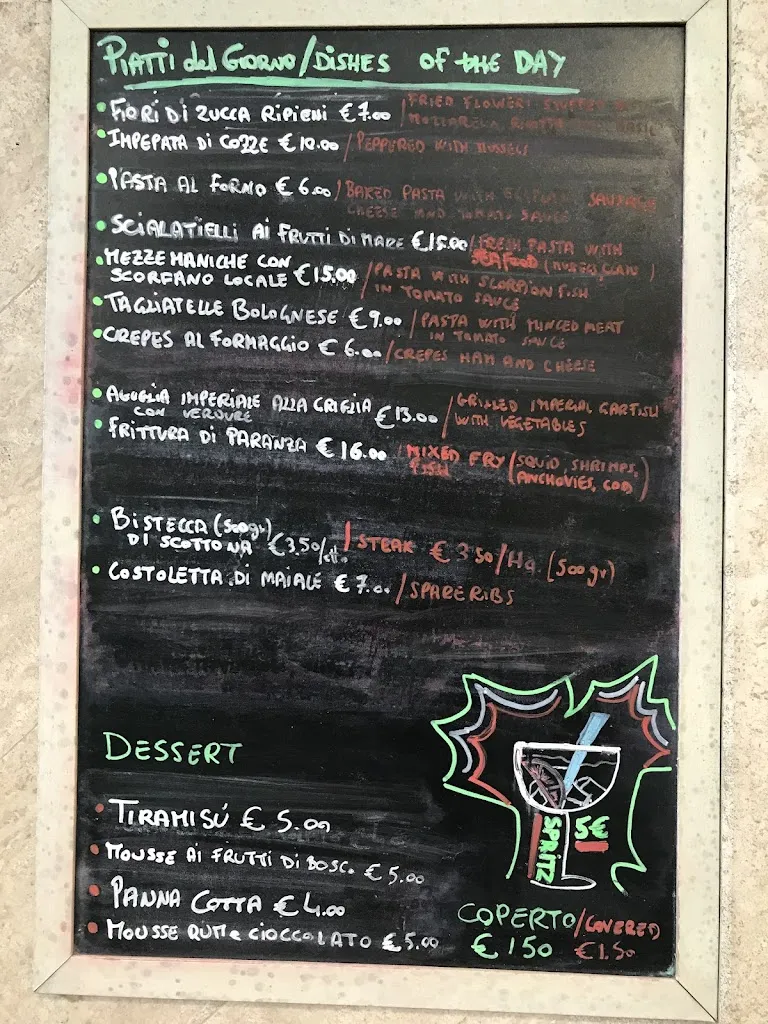 PIATTI del GIORNO/DISHES OF the DAY
FIORI DI ZUCCA RIPIENI €7.00 / FRIED FLOWERS STUFFED
MOZZARELLA, RICOTTA
IMPEPATA DI COZZE €10.00 / PEPPERED WITH MUSSELS
PASTA AL FORNO €6.00 / BAKED PASTA WITH SAUSAGE
CHEESE AND TOMATO SAUCE
SCIALATIELLI AI FRUTTI DI MARE €15.00 / FRESH PASTA WITH
SEAFOOD (MUSSELS, CLAM)
MEZZE MANICHE CON
SCORFANO LOCALE €15.00 / PASTA WITH SCORPION FISH
IN TOMATO SAUCE
TAGLIATELLE BOLOGNESE €9.00 / PASTA WITH MINCED MEAT
IN TOMATO SAUCE
CREPES AL FORMAGGIO €6.00 / CREPES HAM AND CHEESE
AGUGLIA IMPERIALE ALLA GRIGLIA €13.00 / GRILLED IMPERIAL GARFISH
CON VERDURE WITH VEGETABLES
FRITTURA DI PARANZA €16.00 / MIXED FRY (SQUID, SHRIMPS,
FISH ANCHOVIES, COD)
BISTECCA (500gr)
DI SCOTTONA €3.50/etto / STEAK €3.50/Hg. (500gr)
COSTOLETTA DI MAIALE €7.00 / SPARE RIBS
DESSERT
TIRAMISÚ €5.00
MOUSSE AI FRUTTI DI BOSCO €5.00
PANNA COTTA €4.00
MOUSSE RUM e CIOCCOLATO €5.00
SPRITZ
5€
COPERTO/COVERED
€150 €1.50